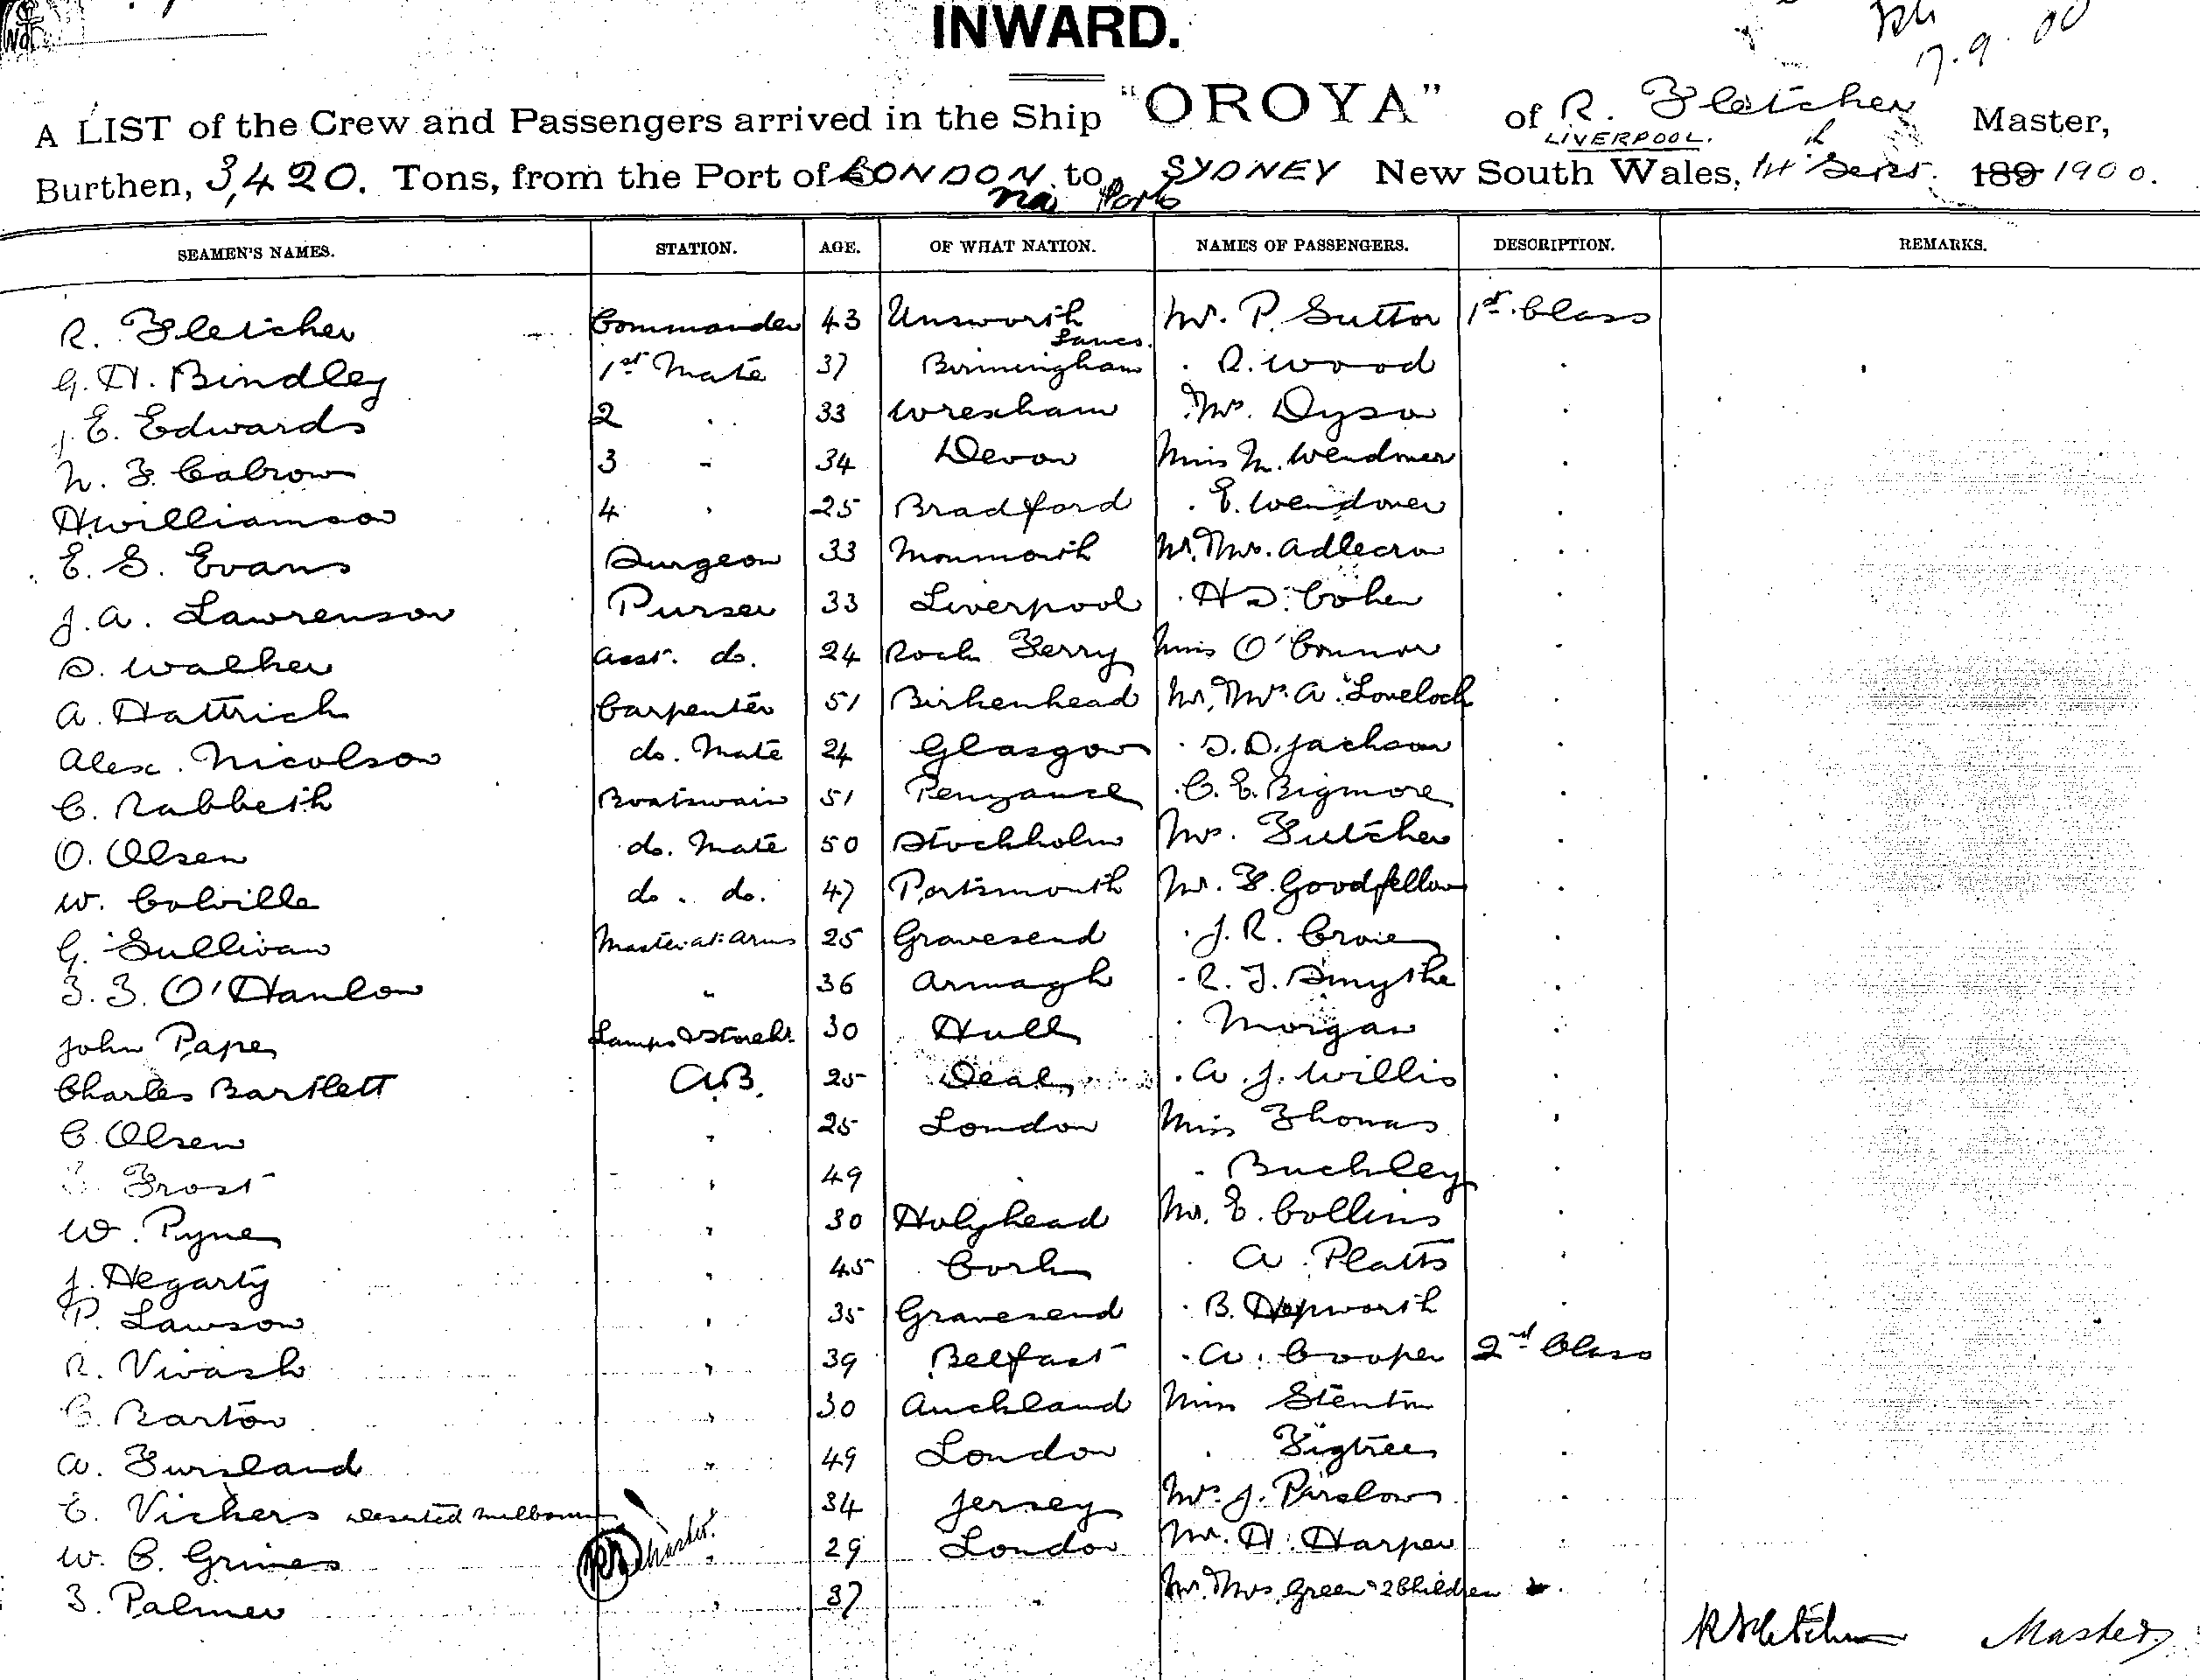 INWARD.
17.9.00
A LIST of the Crew and Passengers arrived in the Ship "OROYA" of R. Fletcher Master,
LIVERPOOL.
Burthen, 3,420. Tons, from the Port of LONDON to SYDNEY New South Wales, 14th Sept. 189 1900.
via Ports
SEAMEN'S NAMES. STATION. AGE. OF WHAT NATION. NAMES OF PASSENGERS. DESCRIPTION. REMARKS.
R. Fletcher Commander 43 Unsworth Lancs. Mr. P. Sutton 1st Class
G. H. Bindley 1st Mate 37 Birmingham . R. Wood .
J. E. Edwards 2 . 33 Wrexham Mrs. Dyson .
N. F. Calrow 3 - 34 Devon Miss M. Wendover .
H Williamson 4 . 25 Bradford . E. Wendover .
E. G. Evans Surgeon 33 Monmouth Mr, Mrs. Adlecron .
J. A. Lawrenson Purser 33 Liverpool . H D. Cohen .
S. Walker Asst. do. 24 Rock Ferry Miss O'Connor .
A. Hattrich Carpenter 51 Birkenhead Mr, Mrs A. Lovelock .
Alex. Nicolson do. Mate 24 Glasgow . S. D. Jackson .
C. Rabbeth Boatswain 51 Penzance . C. E. Bigmore .
O. Olsen do. Mate 50 Stockholm Mrs. Futcher .
W. Colville do. do. 47 Portsmouth Mr. F. Goodfellow .
G. Sullivan Master at Arms 25 Gravesend . J. R. .
F. F. O'Hanlon " 36 Armagh . R. J. Smythe .
John Pape Lamps & Storekr. 30 Hull . Morgan .
Charles Bartlett A.B. 25 Deal . A. J. Willis .
C. Olsen " 25 London Miss Thomas .
Frost " 49 . . Buckley .
W. Pyne " 30 Holyhead Mr. E. Collins .
J. Hegarty " 45 Cork . A. Platts .
P. Lawson " 35 Gravesend . B. Hepworth .
R. Vivash " 39 Belfast . A. Cooper 2nd Class
C. Barton " 30 Auckland Miss Stenton .
A. Fursland " 49 London . Figtree .
E. Vickers Deserted Melbourne 34 Jersey Mrs. J. Parslow .
W. C. Grimes " 29 London Mr. H. Harper .
F. Palmer " 37 . Mr. Mrs Green & 2 Children .
R Fletcher Master